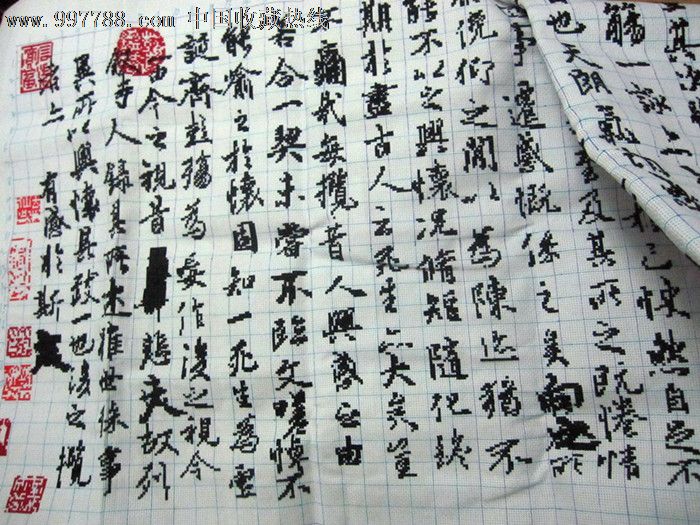 www.997788.com 中国收藏热线
其次
觴一詠上
也天朗氣
己怏然自足不
及其所之既惓情
事遷感慨係之矣向之所
俛仰之間以為陳迹猶不
能不以之興懷況脩短隨化終
期於盡古人云死生亦大矣豈
不痛哉每攬昔人興感之由
若合一契未嘗不臨文嗟悼不
能喻之於懷固知一死生為虛
誕齊彭殤為妄作後之視今
由今之視昔悲夫故列
敘時人錄其所述雖世殊事
異所以興懷其致一也後之攬
有感於斯文